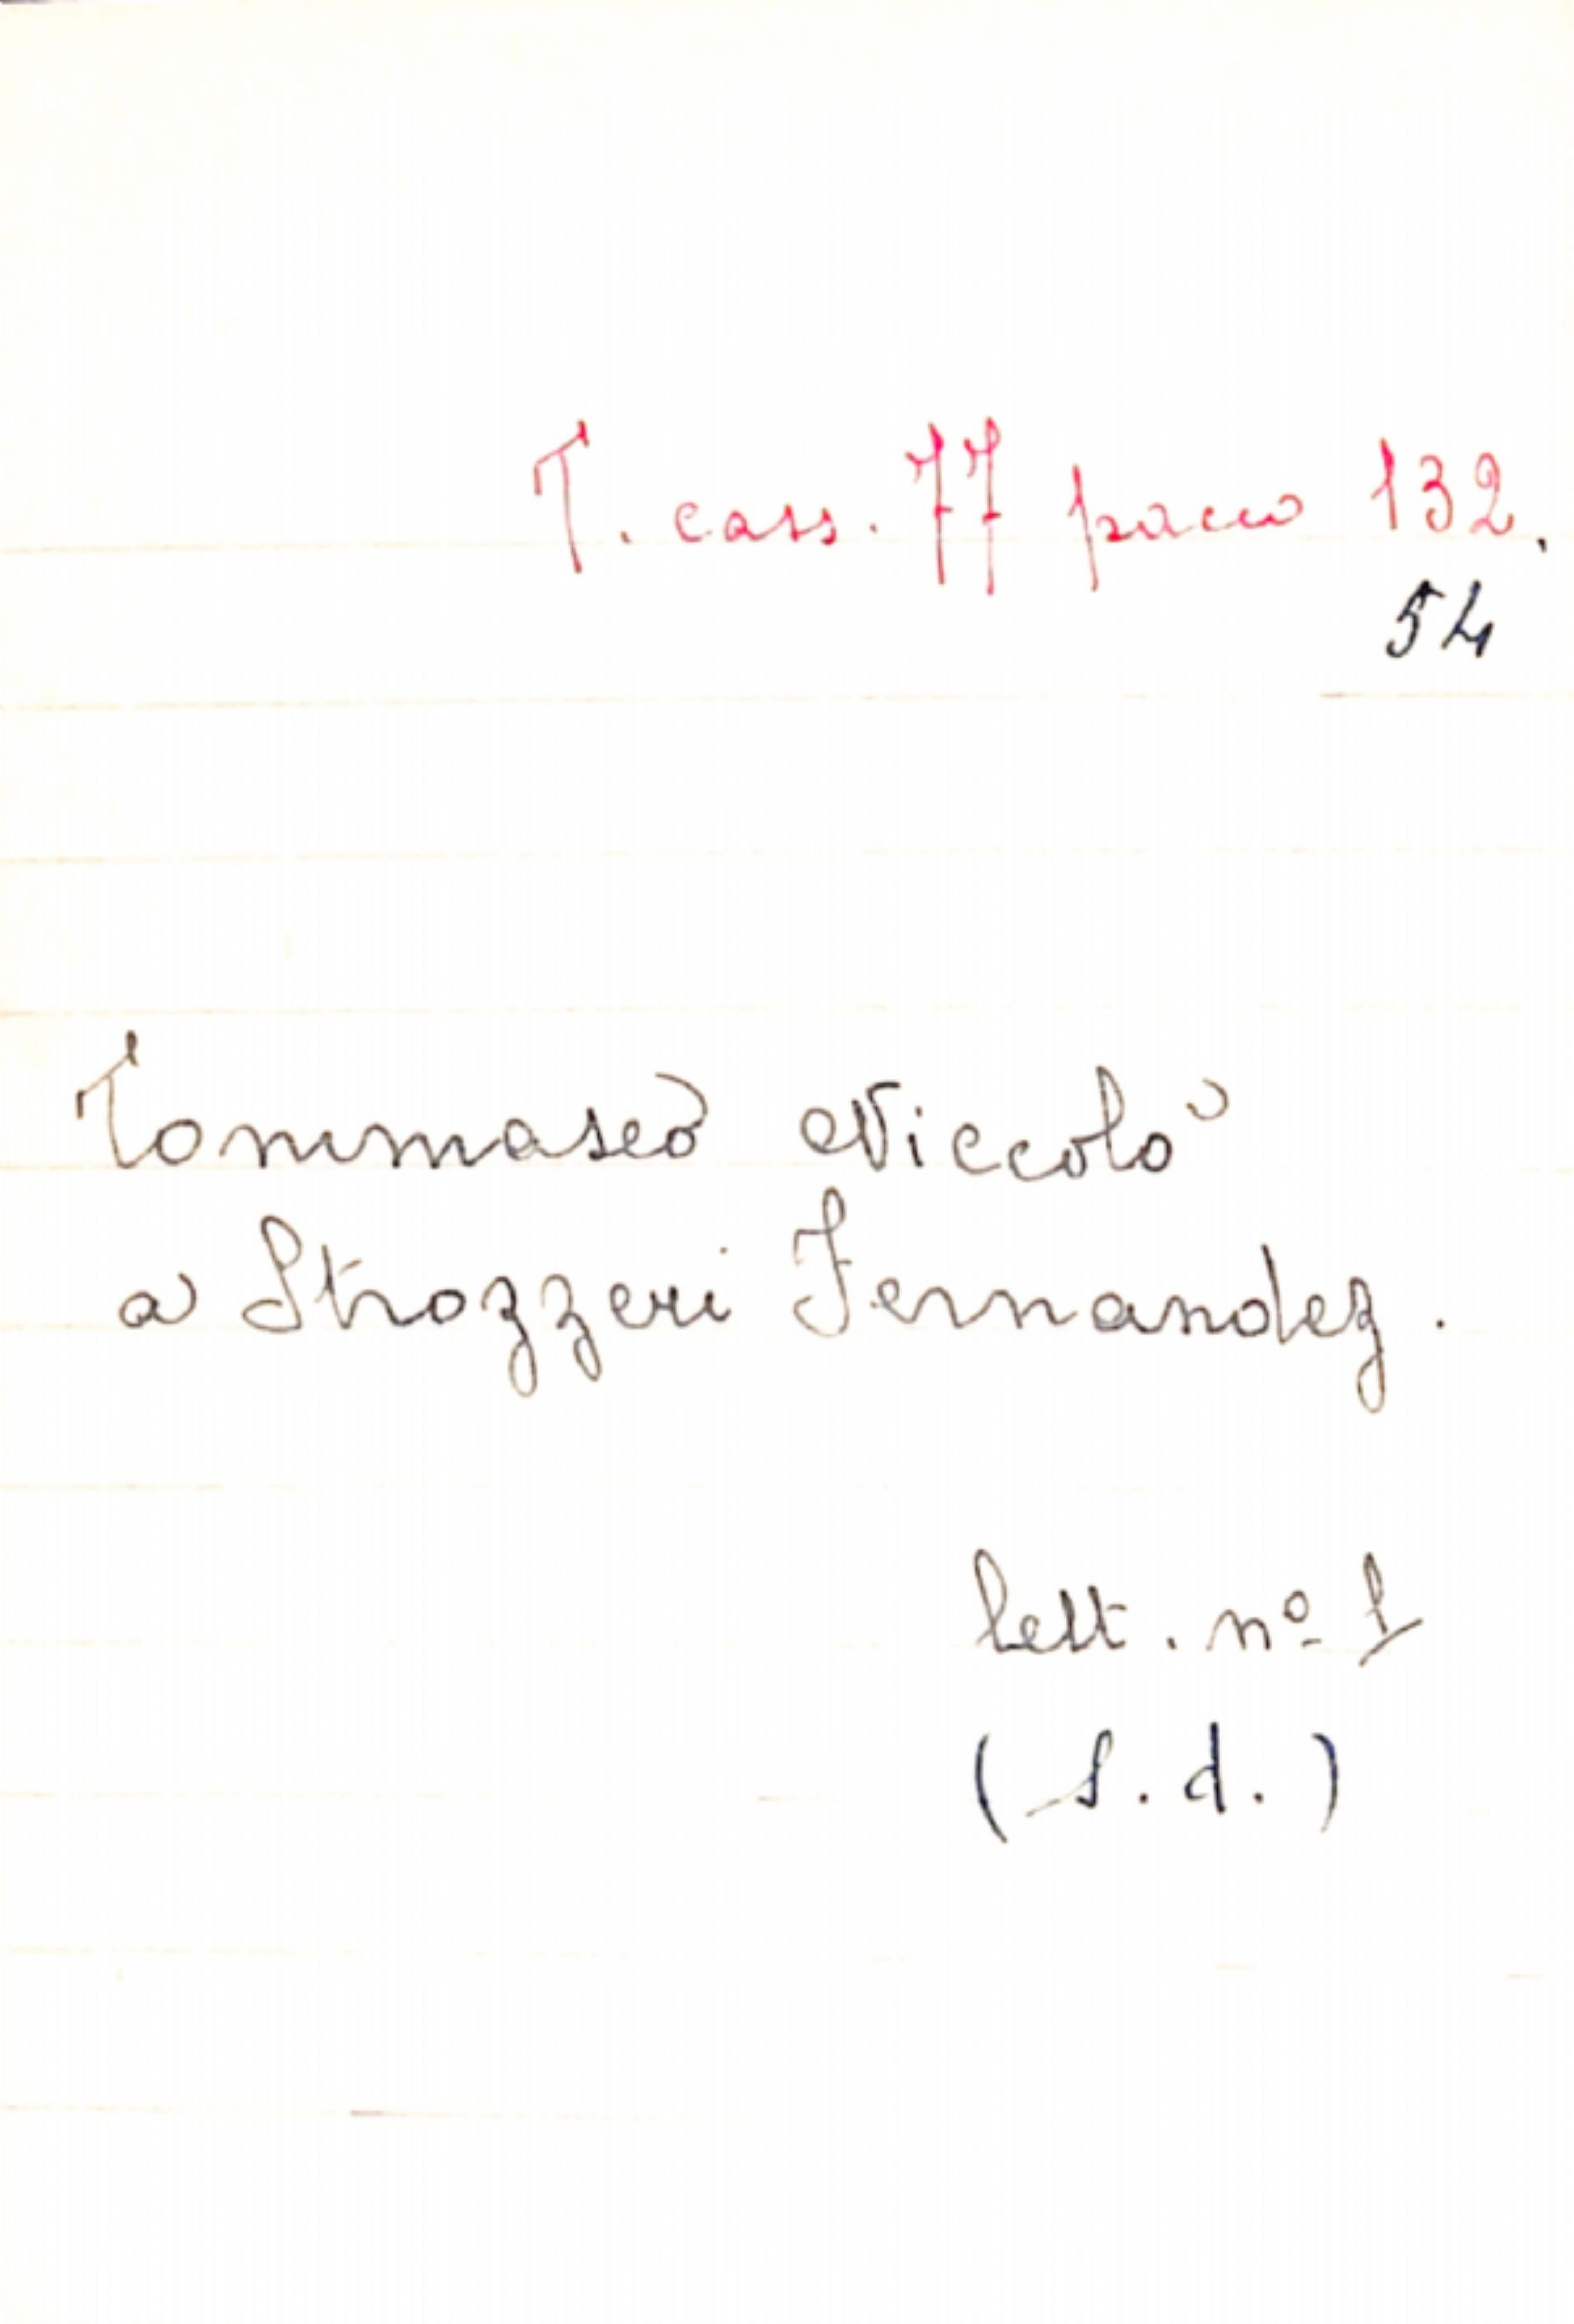 T. cass. 77 pacco 132.
54
Tommaseo Niccolò
a Strozzeri Fernandez.
lett. nº 1
(s.d.)